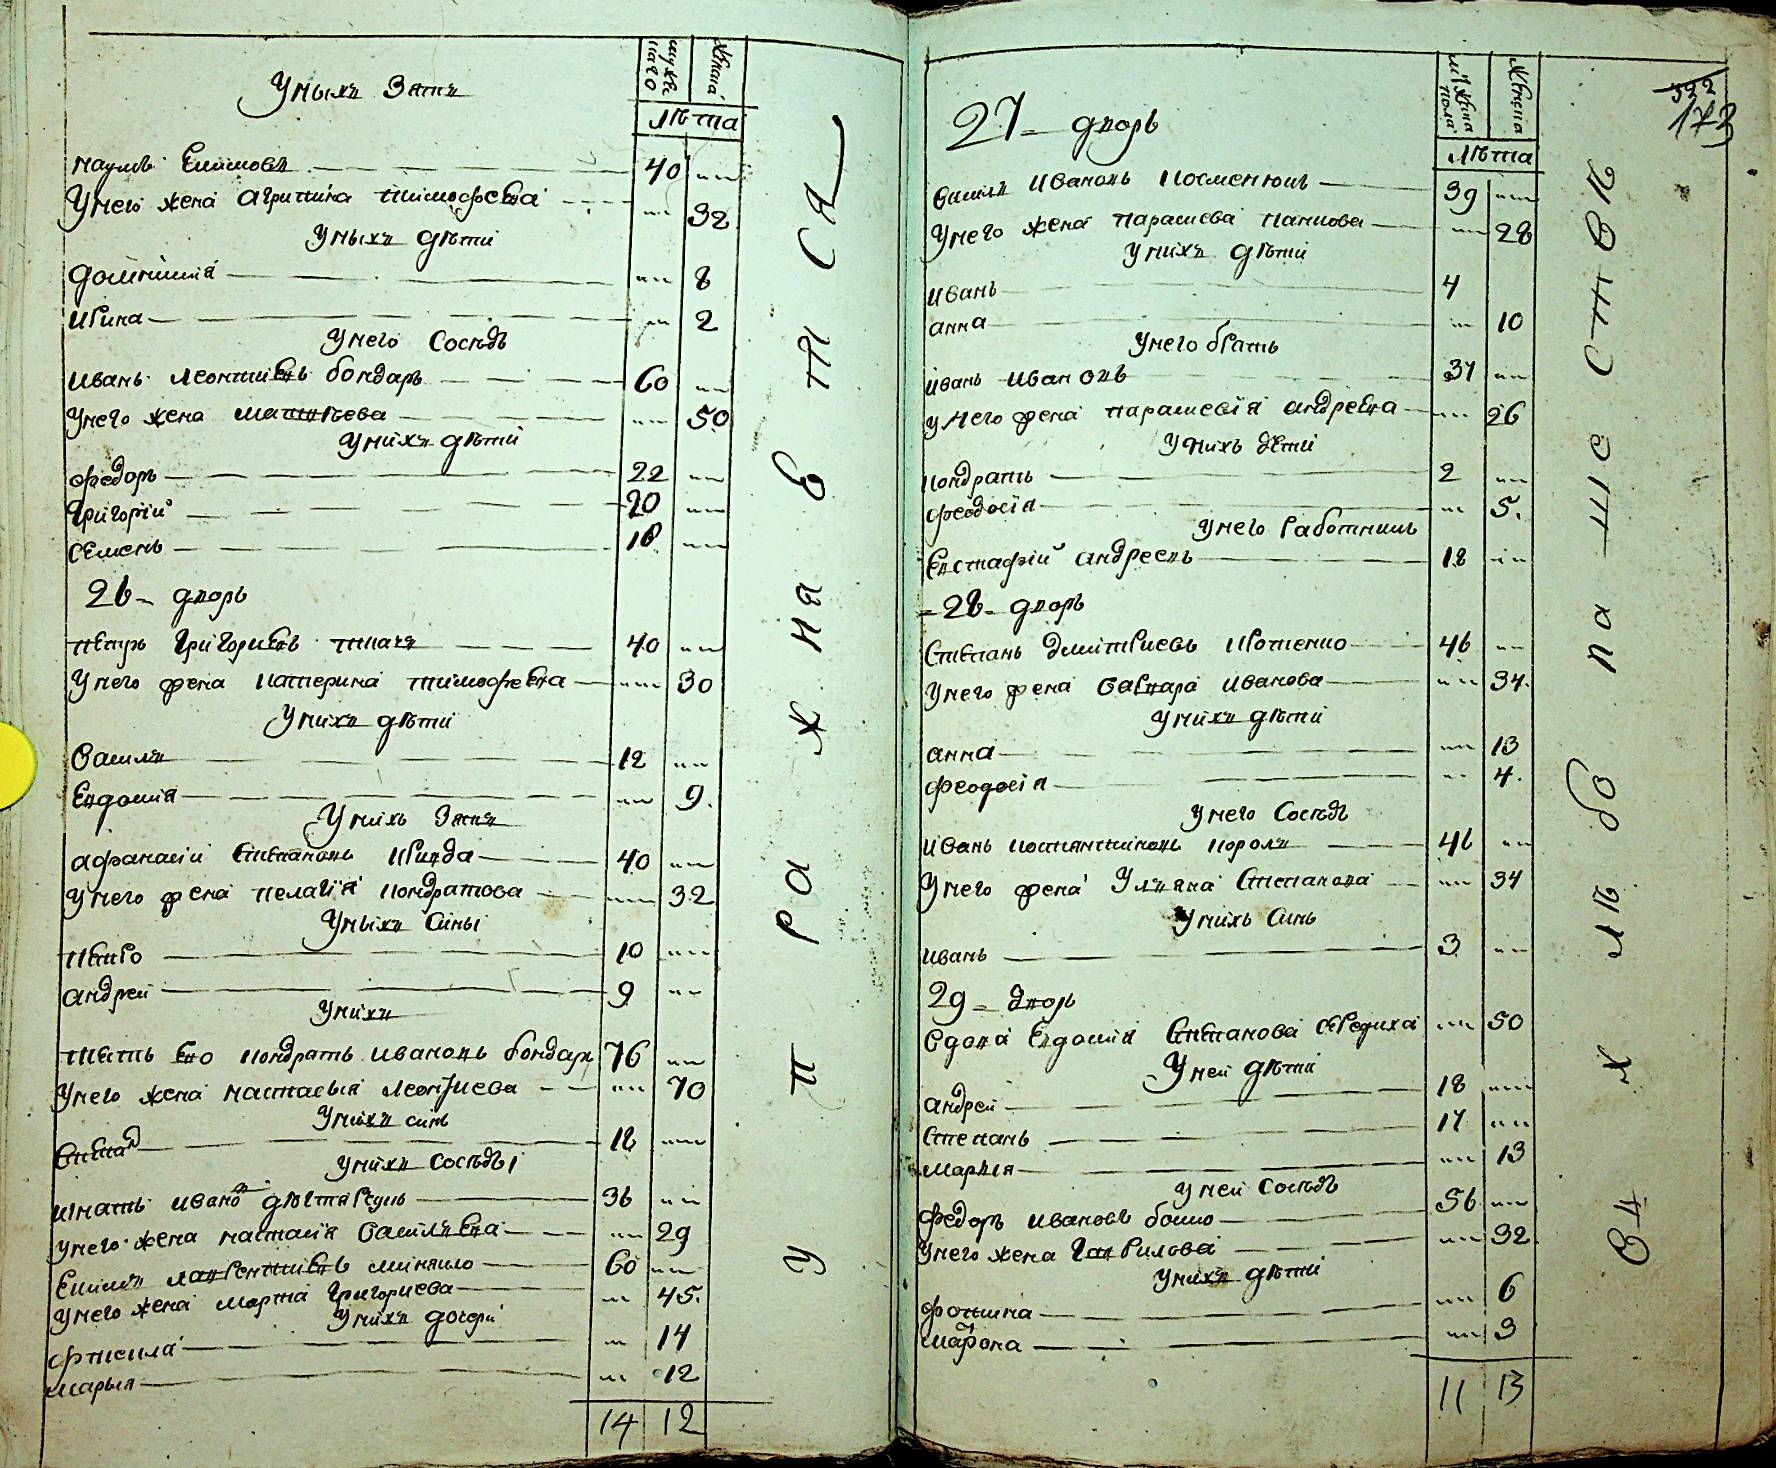 Умыхъ Зять
мужеска го
женска
лѣта
наумъ Еѳимовъ 40
Унего жена агрипина тимофеева 32
Умыхъ дѣти
домникия 8
ирина 2
Унего Сосѣдъ
иванъ леонтиевъ бондаръ 60
Унего жена матвѣева 50
Унихъ дѣти
федоръ 22
григорий 20
Семенъ 18
26 дворъ
петръ григориевъ ткачъ 40
Унего жена катерина тимофеева 30
Унихъ дѣти
Василъ 12
Евдокия 9
Унихъ Зять
афанасий Степановъ 40
Унего жена пелагия кондратова 32
Умыхъ Сыны
петро 10
андрей 9
Унихъ
тесть Его кондратъ ивановъ бондаръ 76
Унего жена настасья леонтиева 70
Унихъ синъ
Степанъ 18
Унихъ Сосѣды
игнатъ ивановъ 36
унего жена настасия Василъева 29
лаврентиевъ 60
Унего жена марта григориева 45
Унихъ дочери
14
марья 12
14 12
У п ра ж на в т ся
322
173
мужеска пола
женска
лѣта
27 дворъ
Василъ Ивановъ 39
Унего жена парасчева 28
Унихъ дѣти
иванъ 4
анна 10
Унего братъ
иванъ ивановъ 37
унего жена парасчевия андреева 26
Унихъ дети
кондратъ 2
феодосия 5
Унего работникъ
Евстафий андреевъ 18
28 дворъ
Степанъ дмитриевъ 46
Унего жена варвара иванова 34
Унихъ дѣти
анна 13
феодосия 4
Унего Сосѣдъ
иванъ костянтиновъ король 46
Унего жена Уляна Степанова 34
Унихъ Синъ
иванъ 3
29 дворъ
вдова Евдокия Степанова 50
Уней дѣти
андрей 18
Степанъ 17
марья 13
Уней Сосѣдъ
федоръ ивановъ бойко 56
Унего жена гаврилова 32
Унихъ дѣти
фотина 6
3
11 13
в х лѣ бо па ше ст вѣ